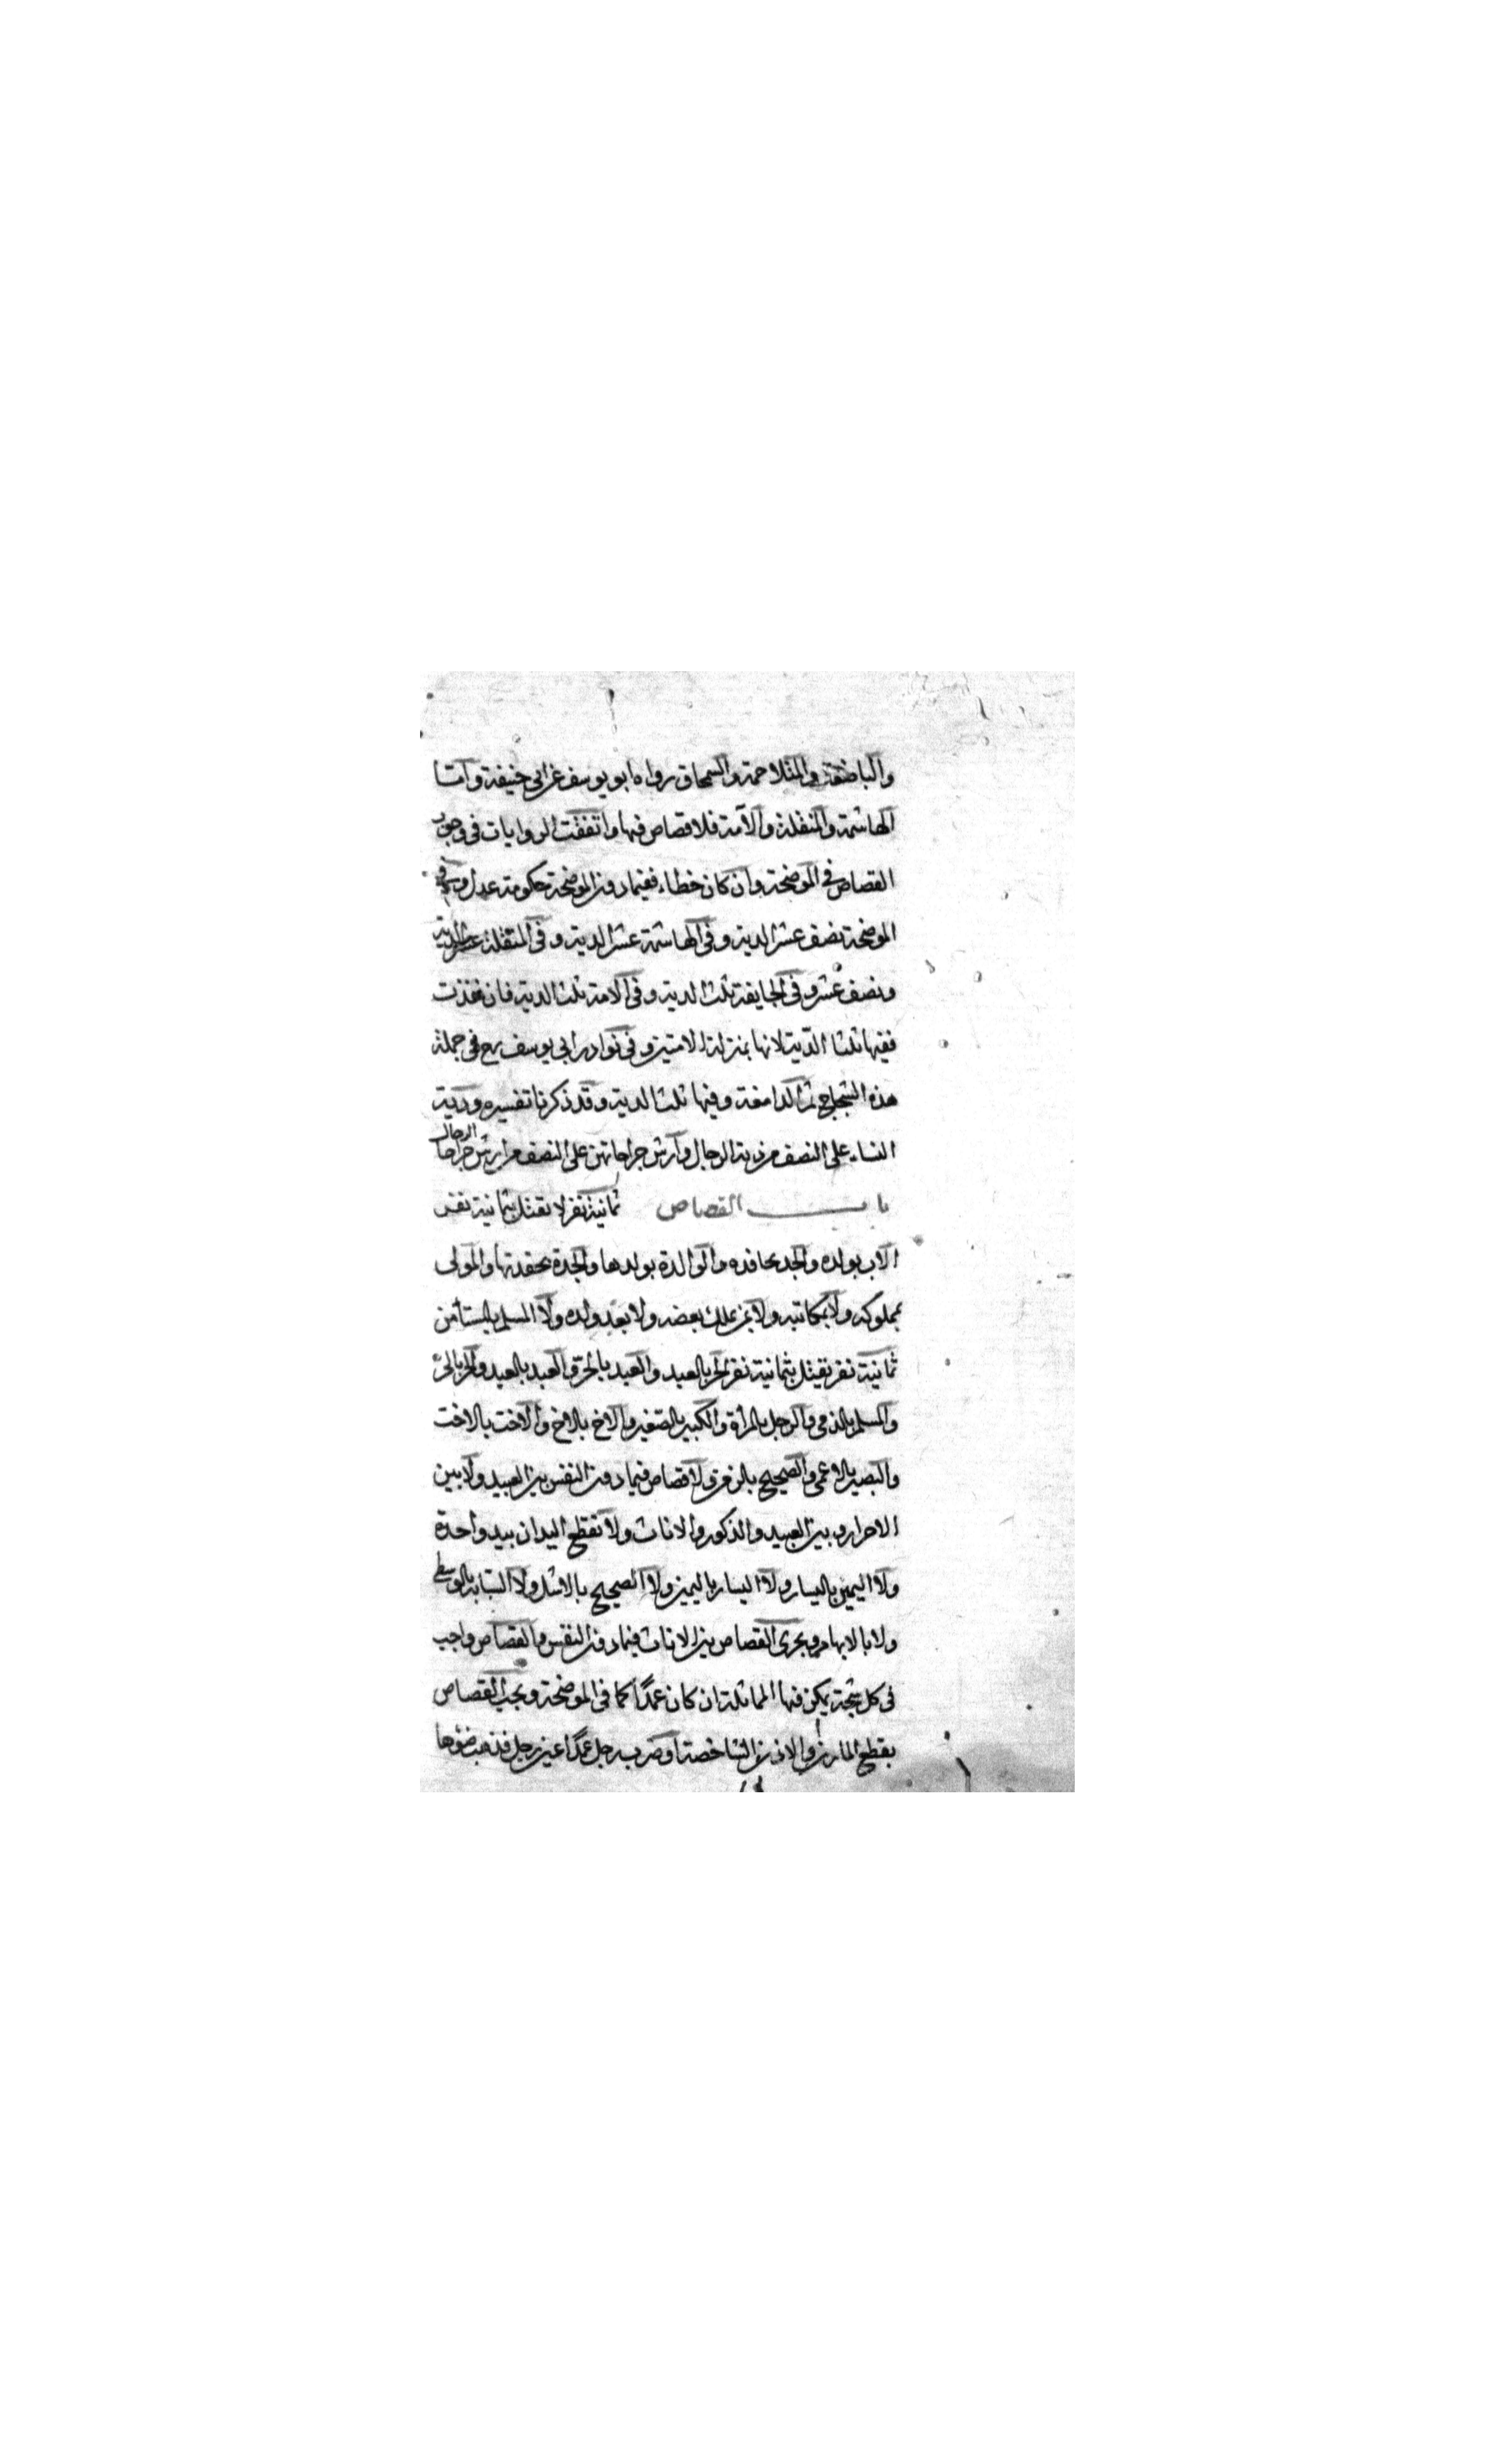 والباضعة والمتلاحمة والسمحاق رواه ابو يوسف عن ابى حنيفة واما
الهاشمة والمنقلة والآمة فلا قصاص فيها واتفقت الروايات فى وجوب
القصاص فى الموضحة وان كان خطاء ففيما دون الموضحة حكومة عدل وفى
الموضحة نصف عشر الدية وفى الهاشمة عشر الدية وفى المنقلة عشر الدية
ونصف عشر وفى الجايفة ثلث الدية وفى الامة ثلث الدية فان نفذت
ففيها ثلثا الدّية لانها بمنزلة الامتين وفى نوادر ابى يوسف رح فى جملة
هذه الشجاج ثم الدامغة وفيها ثلث الدية وقد ذكرنا تفسيره ودية
النساء على النصف من دية الرجال وارش جراحاتهن على النصف من ارش جراحا الرجال
باب القصاص ثمانية نفر لا تقتل بثمانية نفر
الاب بولده والجد بحافده والوالدة بولدها والجدة بحفدتها والمولى
بمملوكه ولا بمكاتبه ولا بمن ملك بعضه ولا بعبد ولده ولا المسلم بالمستأمن
ثمانية نفر يقتل بثمانية نفر الحر بالعبد والعبد بالحر والعبد بالعبد والحر بالحر
والمسلم بالذمى والرجل بالمرأة والكبير بالصغير والاخ بالاخ والاخت بالاخت
والبصير بالاعمى والصحيح بالزمن لا قصاص فيما دون النفس بين العبيد ولا بين
الاحرار وبين العبيد والذكور والاناث ولا تقطع اليدان بيد واحدة
ولا اليمين باليسار ولا اليسار باليمين ولا الصحيح بالاشل ولا السبابة بالوسطى
ولا بالابهام ويجرى القصاص بين الاناث فيما دون النفس والقصاص واجب
فى كل شجة يمكن فيها المماثلة ان كان عمدًا كما فى الموضحة ويجب القصاص
بقطع المارن والاذن الشاخصة او ضرب رجل عمدًا عين رجل فذهب ضؤها